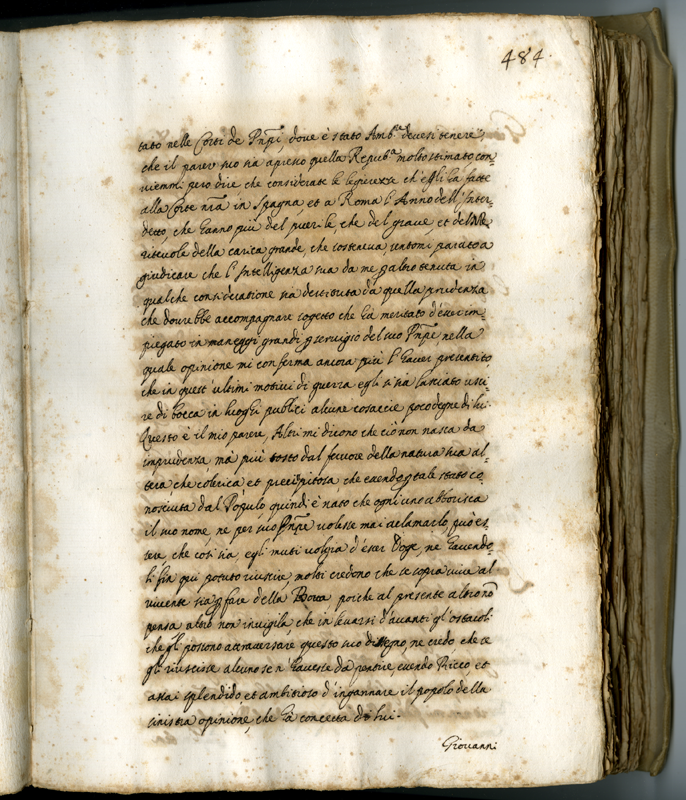 484.
tato nelle Corti de Pnpi, dove è stato Ambre devesi tenere,
che il parer suo sia apresso quella Repuba molto stimato con-
viemmi però dire che considerate le legierezze ch'egli hà fatte
alla Corte nra in Spagna, et à Roma l'Anno dell'Inter-
detto, che hanno più del puerile, che del grave, et del
ritevole della carica grande, che sosteneva, untomi paruto a
giudicare che l'Intelligenza sua da me p altro tenuta in
qualche consideratione sia destituta da quella prudenza
che dovrebbe accompagnare sogetto che hà meritato d'esser im-
piegato in maneggi grandi p servigio del suo Pnpe nella
quale opinione mi conferma ancora più l'haver presentito,
che in quest'ultimi motivi di guerra egli si sia lasciato usci-
re di bocca in luoghi publici alcune cosaccie poco degne di lui.
Questo è il mio parere, Altri mi dicono che ciò non nasca da
imprudenza, mà più tosto dal fervore della natura sua al-
tera, che colerica et precipitosa che essendo p tale stato co-
nosciuta dal Populo quindi è nato che ogni uno abborisca
il suo nome, ne per suo Pnpe volesse mai aclamarlo, può es-
sere che così sia egli muti voglia d'esser Doge, ne havendo-
li fin quì potuto riuscire, molti credono che se sopravive al
vivente sia p fare della Rocca poiche al presente altro nō
pensa altro non invigila, che in levarsi d'avanti gl'ostacoli
che gli possono attraversare questo suo disegno, ne credo, che se
gli riuscisse alcuno se n'havesse da pentire, essendo Ricco, et
assai splendido et ambitioso d'ingannare il popolo della
sinistra opinione, che hà concetta di lui.
Giovanni